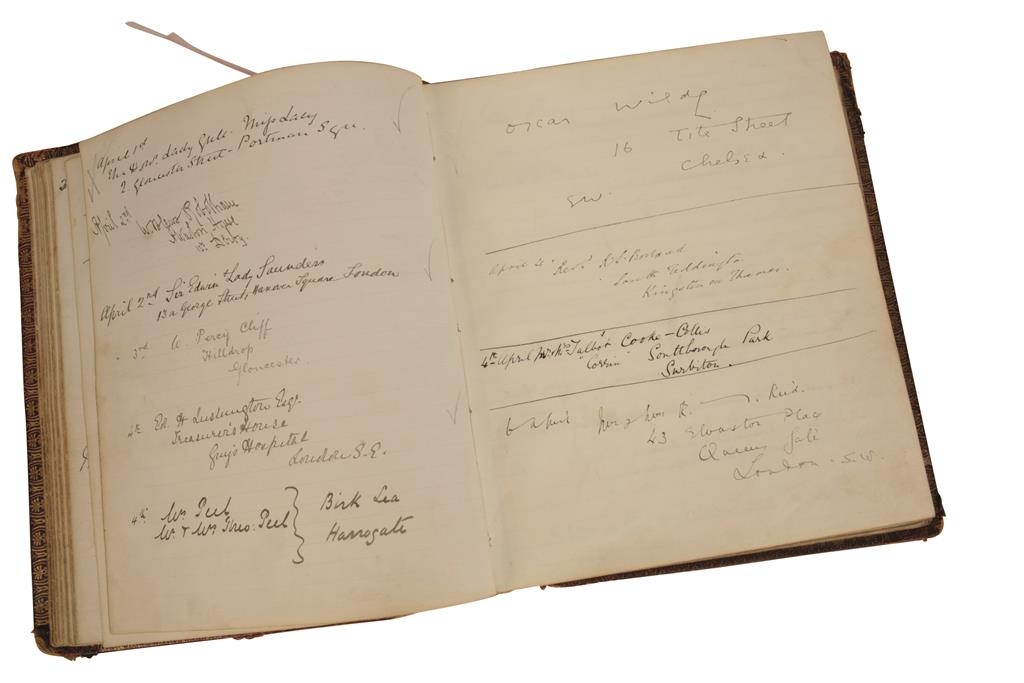 April 1st
The Hon. Lady Gull. Miss Lacy
2. Gloucester Street - Portman Sqre.
April 2nd
Derby.
April 2nd Sir Edwin & Lady Saunders
13a George Street, Hanover Square London
3rd A. Percy Cliff
Hilldrop
Gloucester
4th Ed. H Lushington Esqr.
Treasurer's House
Guy's Hospital
London S.E.
4th Mrs Peel
Mr & Mrs Theo: Peel
Birk Lea
Harrogate
Oscar Wilde
16 Tite Street
Chelsea.
SW.
April 4 Revd. Borland
South Teddington
Kingston on Thames.
4th April Talbot Cooke-Collis
"Corrin" Southborough Park
Surbiton.
6 April R. Reid.
43 Elvaston Place
Queens Gate
London. S.W.